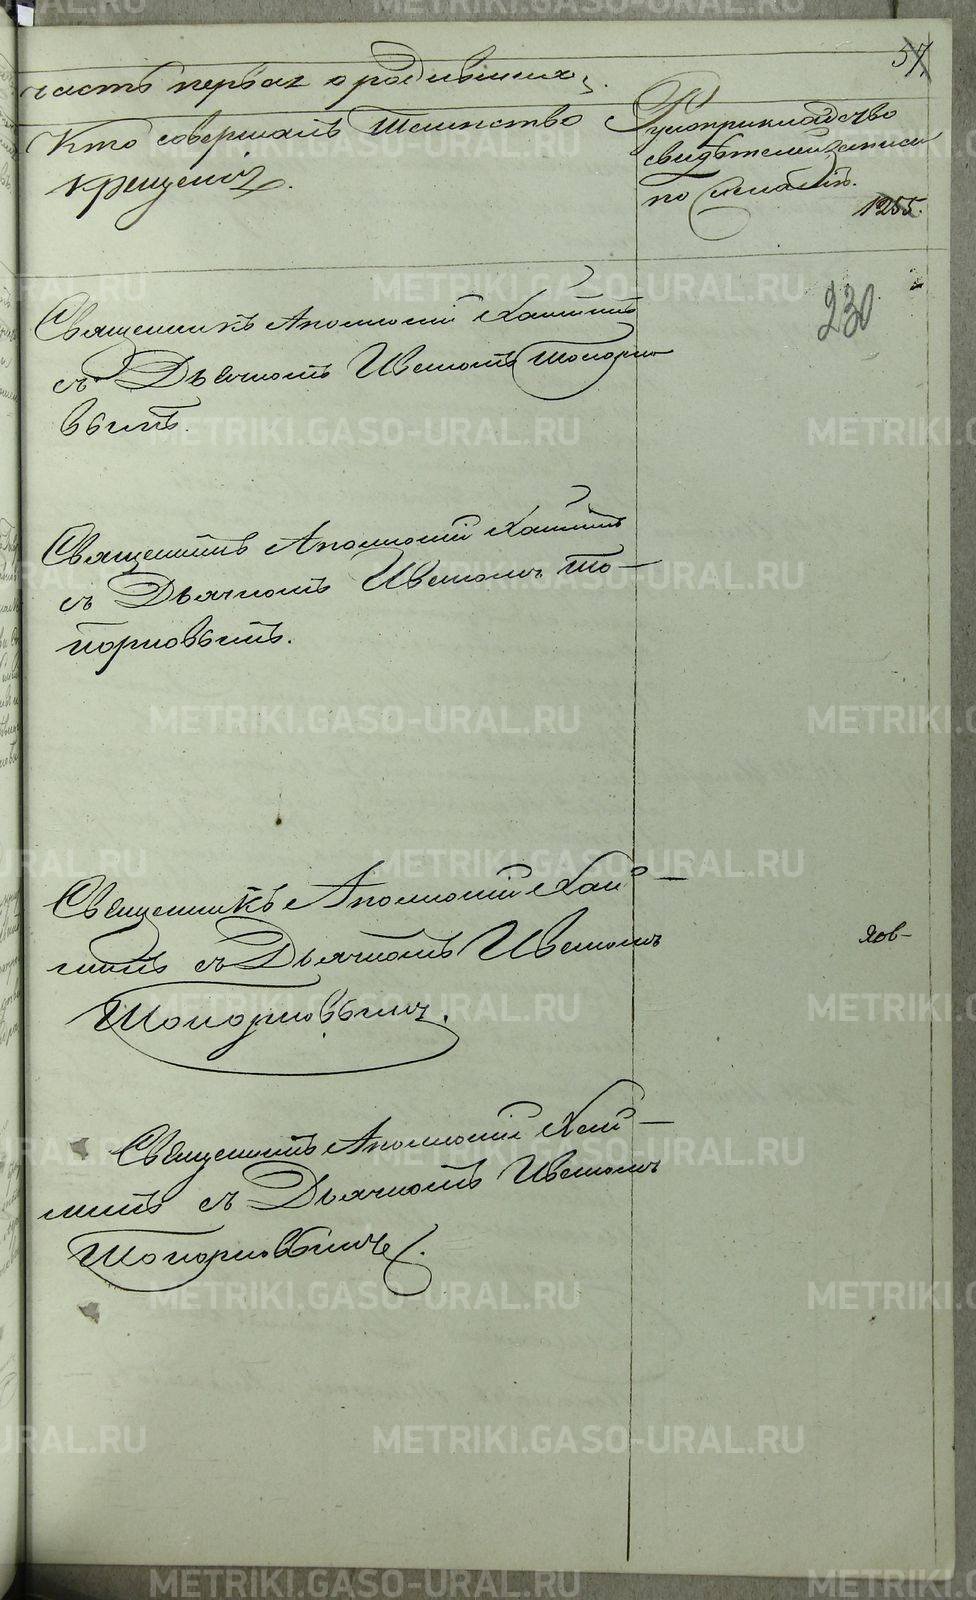 57.
часть первая о родившихся.
Кто совершалъ таинство
крещенія.
Рукоприкладство
свидѣтелей записи
по желанію.
1255.
230
Священникъ Аполлоній
съ Дьячкомъ Иваномъ Топорко-
вымъ.
Священникъ Аполлоній
съ Дьячкомъ Иваномъ То-
порковымъ.
Священникъ Аполлоній
съ Дьячкомъ Иваномъ
Топорковымъ.
яов-
Священникъ Аполлоній
съ Дьячкомъ Иваномъ
Топорковымъ.
METRIKI.GASO-URAL.RU